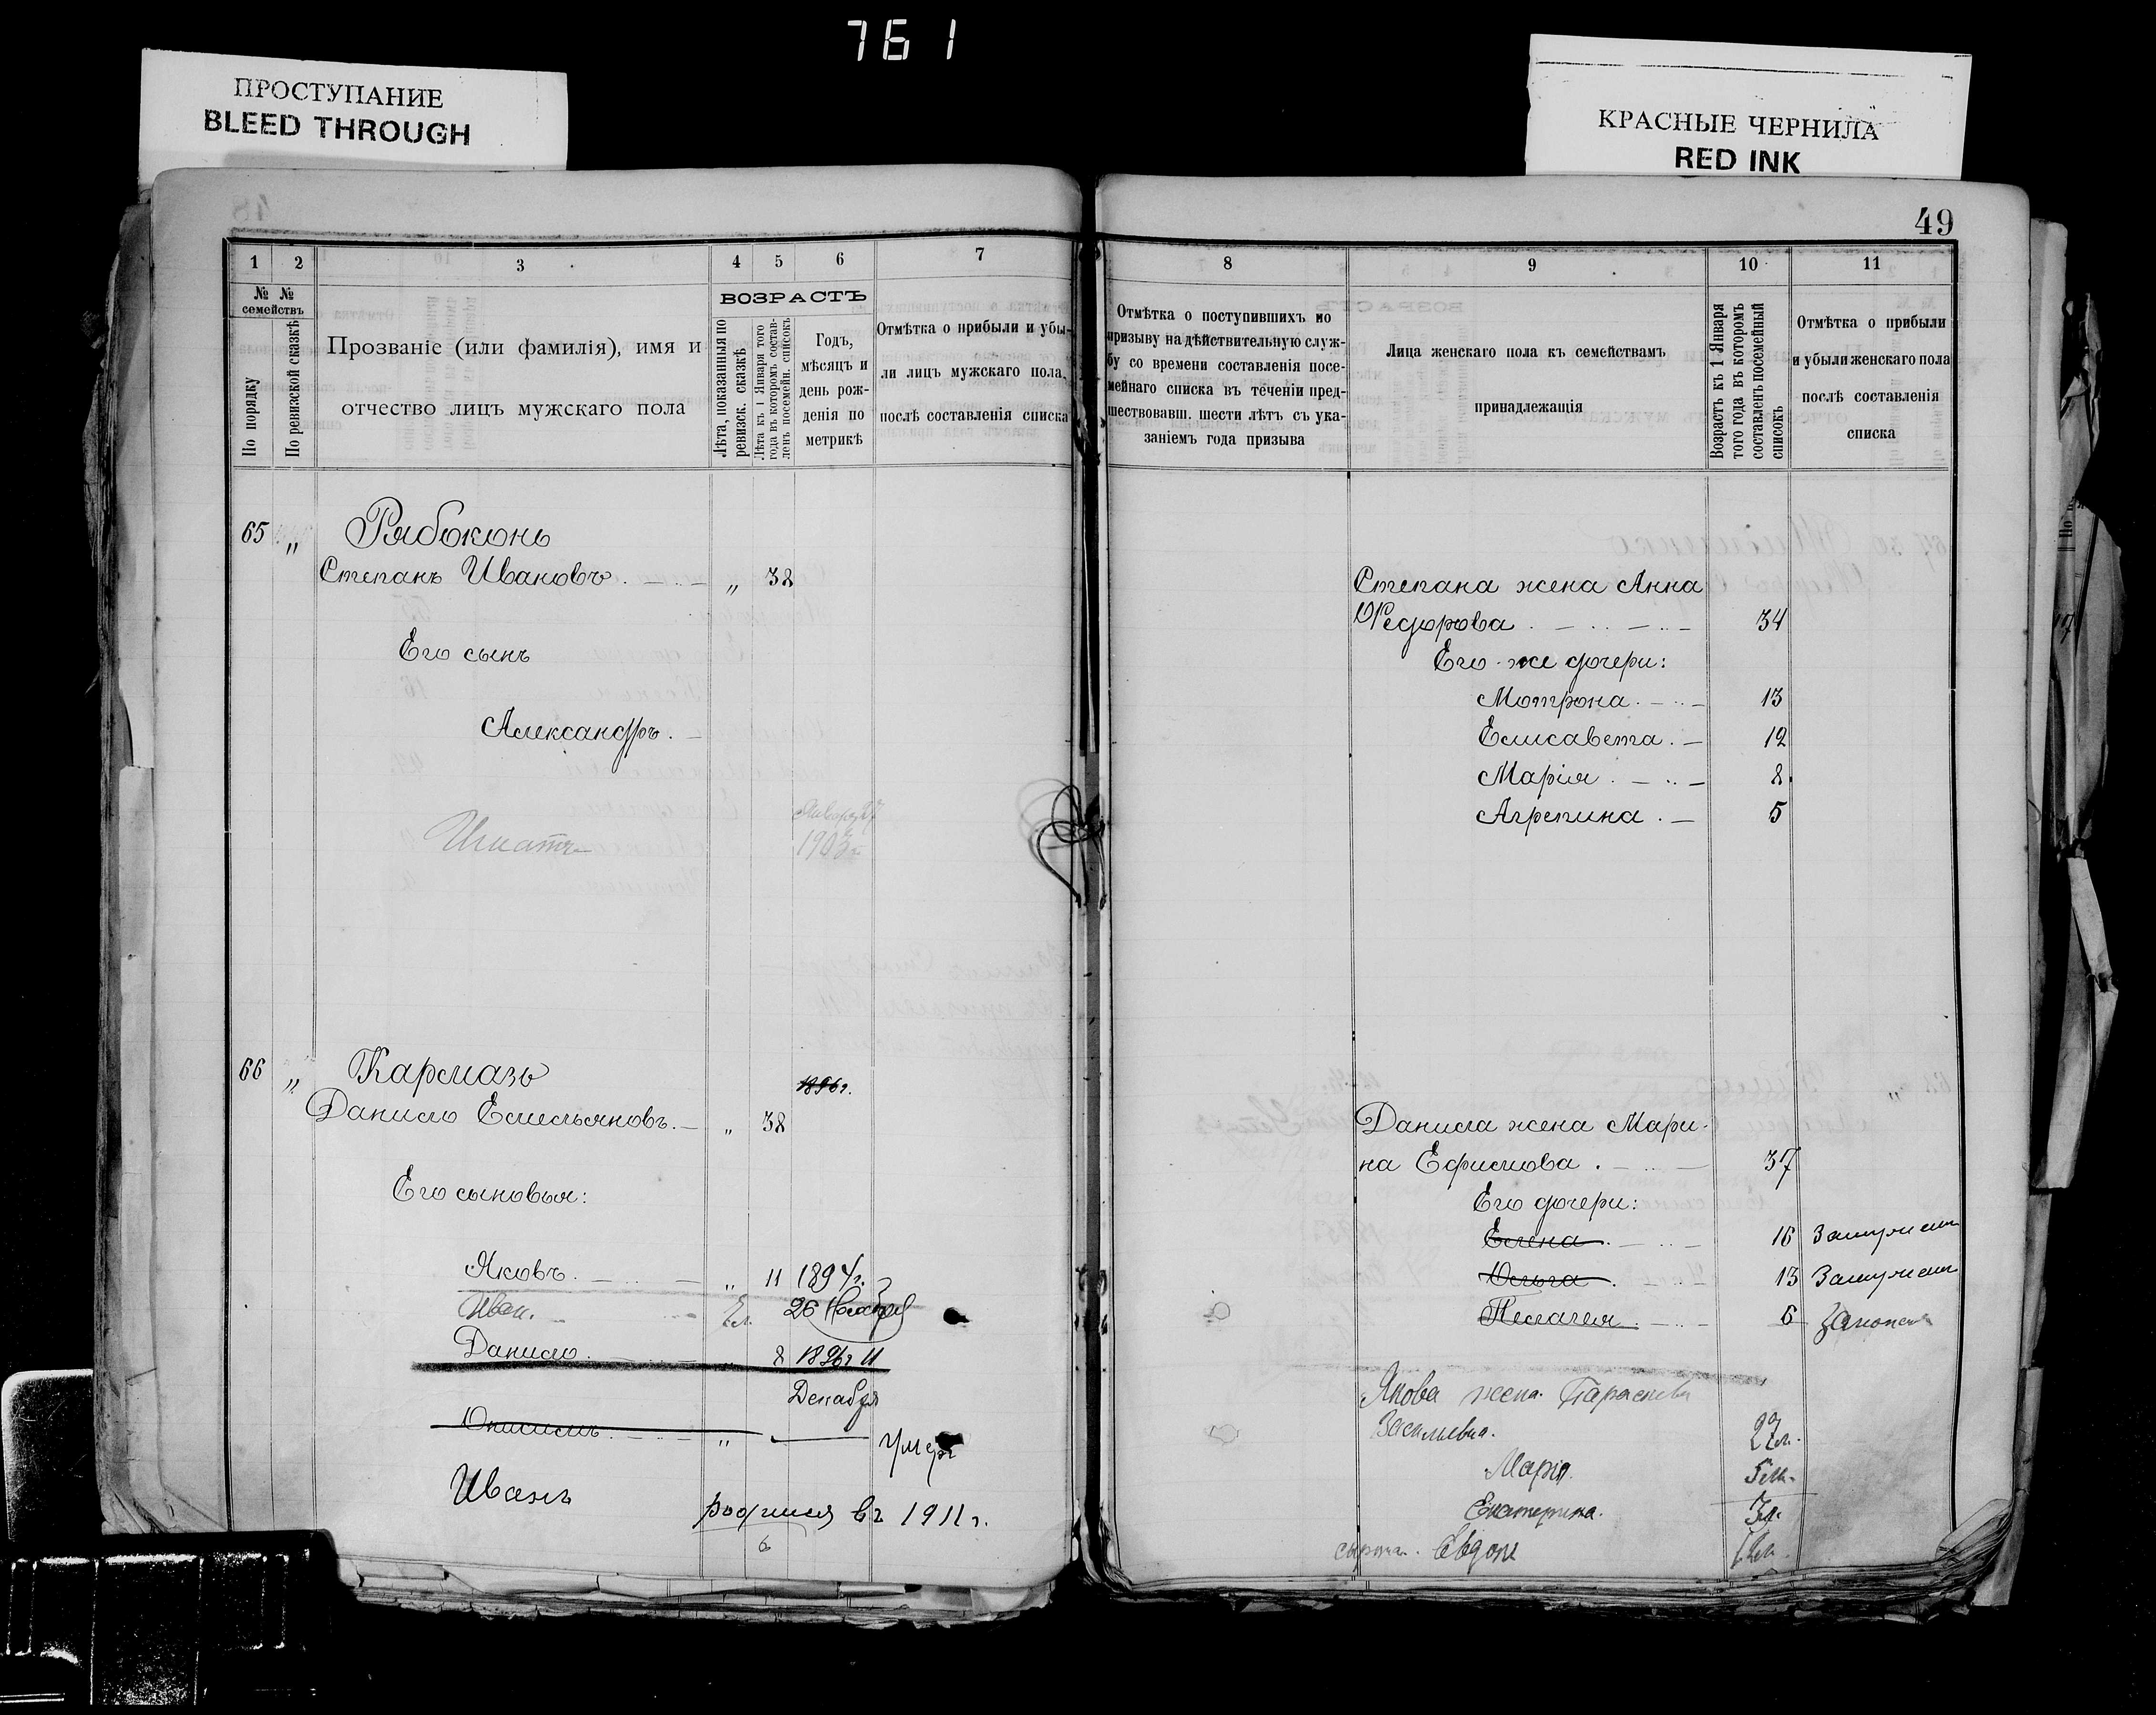 761
ПРОСТУПАНИЕ
BLEED THROUGH
КРАСНЫЕ ЧЕРНИЛА
RED INK
49
1 2 3 4 5 6 7
№ № семействъ
По порядку
По ревизской сказкѣ
Прозваніе (или фамилія), имя и
отчество лицъ мужскаго пола
ВОЗРАСТЪ
Лѣта, показанныя по
ревизск. сказкѣ
Лѣта къ 1 Января того
года въ которомъ состав-
ленъ посемейн. списокъ
Годъ,
мѣсяцъ и
день рож-
денія по
метрикѣ
Отмѣтка о прибыли и убы-
ли лицъ мужскаго пола,
послѣ составленія списка
65 „ Рябоконь
Степанъ Ивановъ „ 38
Его сынъ
Александръ.
Игнатъ
1903
66 „ Кармазь
1896г.
Данило Емельяновъ. „ 38
Его сыновья:
Яковъ. „ 11 1894г.
Иван. 26 Ноября
Данило. „ 8 1896г 11
Декабря
Онисимъ „ Умеръ
Иванъ родился въ 1911г.
6
8 9 10 11
Отмѣтка о поступившихъ по
призыву на дѣйствительную служ-
бу со времени составленія посе-
мейнаго списка въ теченіи пред-
шествовавш. шести лѣтъ съ ука-
заніемъ года призыва
Лица женскаго пола къ семействамъ
принадлежащія
Возрастъ къ 1 Января
того года въ которомъ
составленъ посемейный
списокъ
Отмѣтка о прибыли
и убыли женскаго пола
послѣ составленія
списка
Степана жена Анна
Ѳедорова 34
Его же дочери:
Мотрона. 13
Елисавета. 12
Марія. 8
Агрепина. 5
Данила жена Мари-
на Ефимова. 37
Его дочери:
Елена. 16 Замужем
Ольга. 13 Замужем
Пелагея. 6
Якова жена Параскева
Васильевна. 27л.
Марія. 5л.
Екатерина. 3л.